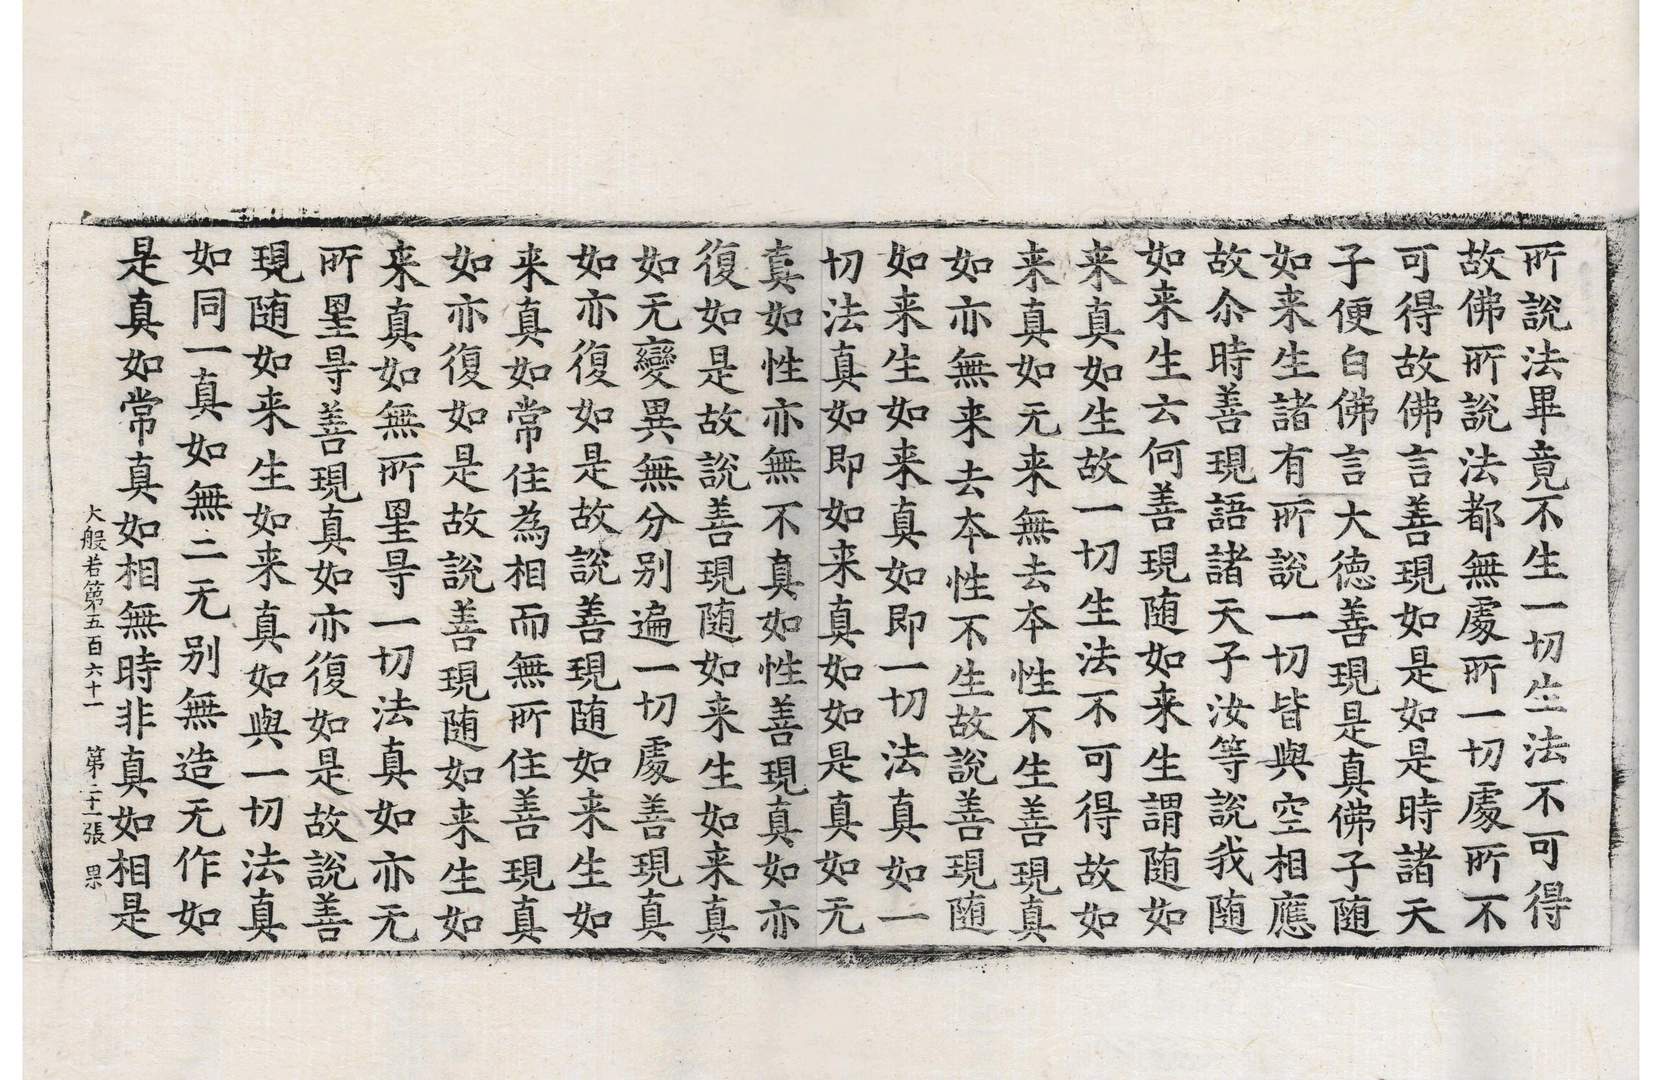 所說法畢竟不生一切生法不可得
故佛所說法都無處所一切處所不
可得故佛言善現如是如是時諸天
子便白佛言大徳善現是真佛子随
如来生諸有所說一切皆與空相應
故尒時善現語諸天子汝等說我随
如来生云何善現随如来生謂随如
来真如生故一切生法不可得故如
来真如无来無去本性不生善現真
如亦無来去本性不生故說善現随
如来生如来真如即一切法真如一
切法真如即如来真如如是真如无
真如性亦無不真如性善現真如亦
復如是故說善現随如来生如来真
如无變異無分别遍一切處善現真
如亦復如是故說善現随如来生如
来真如常住為相而無所住善現真
如亦復如是故說善現随如来生如
来真如無所罣㝵一切法真如亦无
所罣㝵善現真如亦復如是故說善
現随如来生如来真如與一切法真
如同一真如無二无别無造无作如
是真如常真如相無時非真如相是
大般若第五百六十一 第二十一張 果